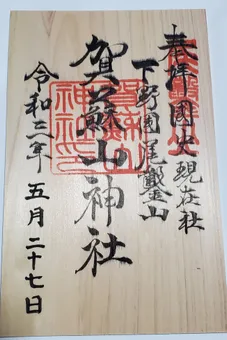 奉拝 國史現在社
下野国尾鑿山
賀蘇山神社
令和三年 五月二十七日